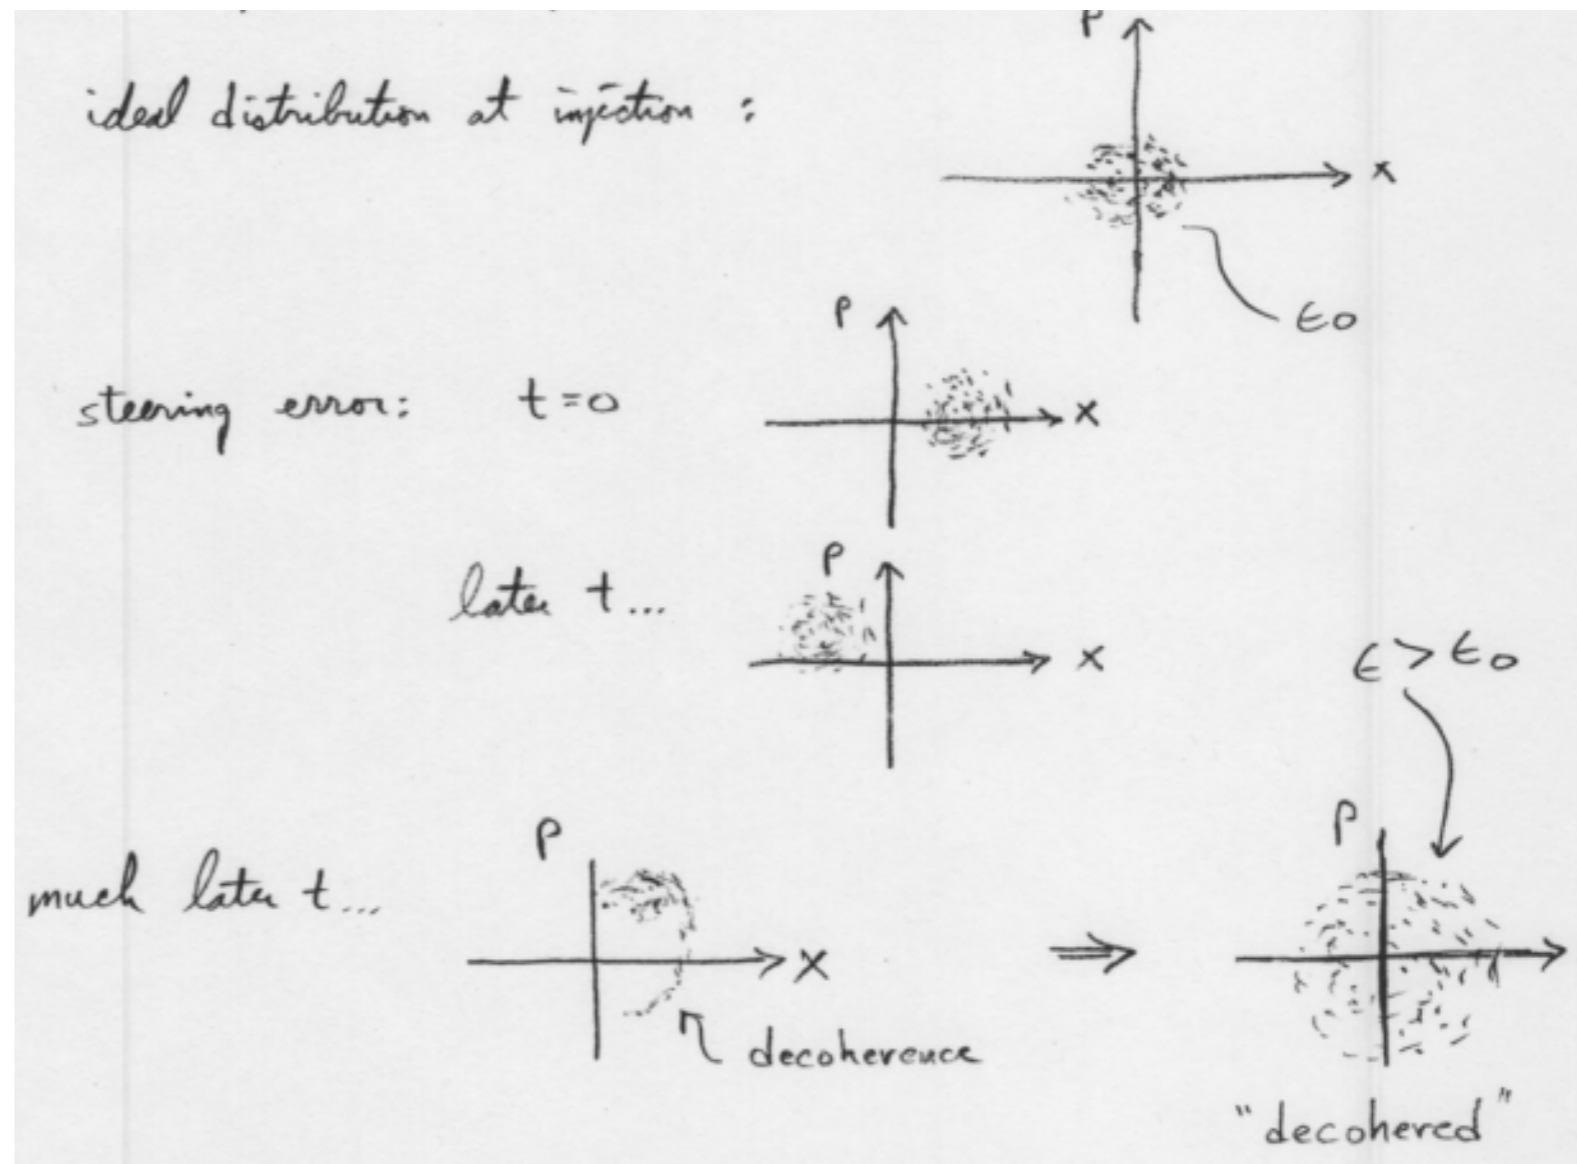 P
ideal distribution at injection :
x
ϵ0
P
steering error: t=0
x
P
later t...
x
ϵ > ϵ0
P
P
much later t...
x
⇒
decoherence
"decohered"